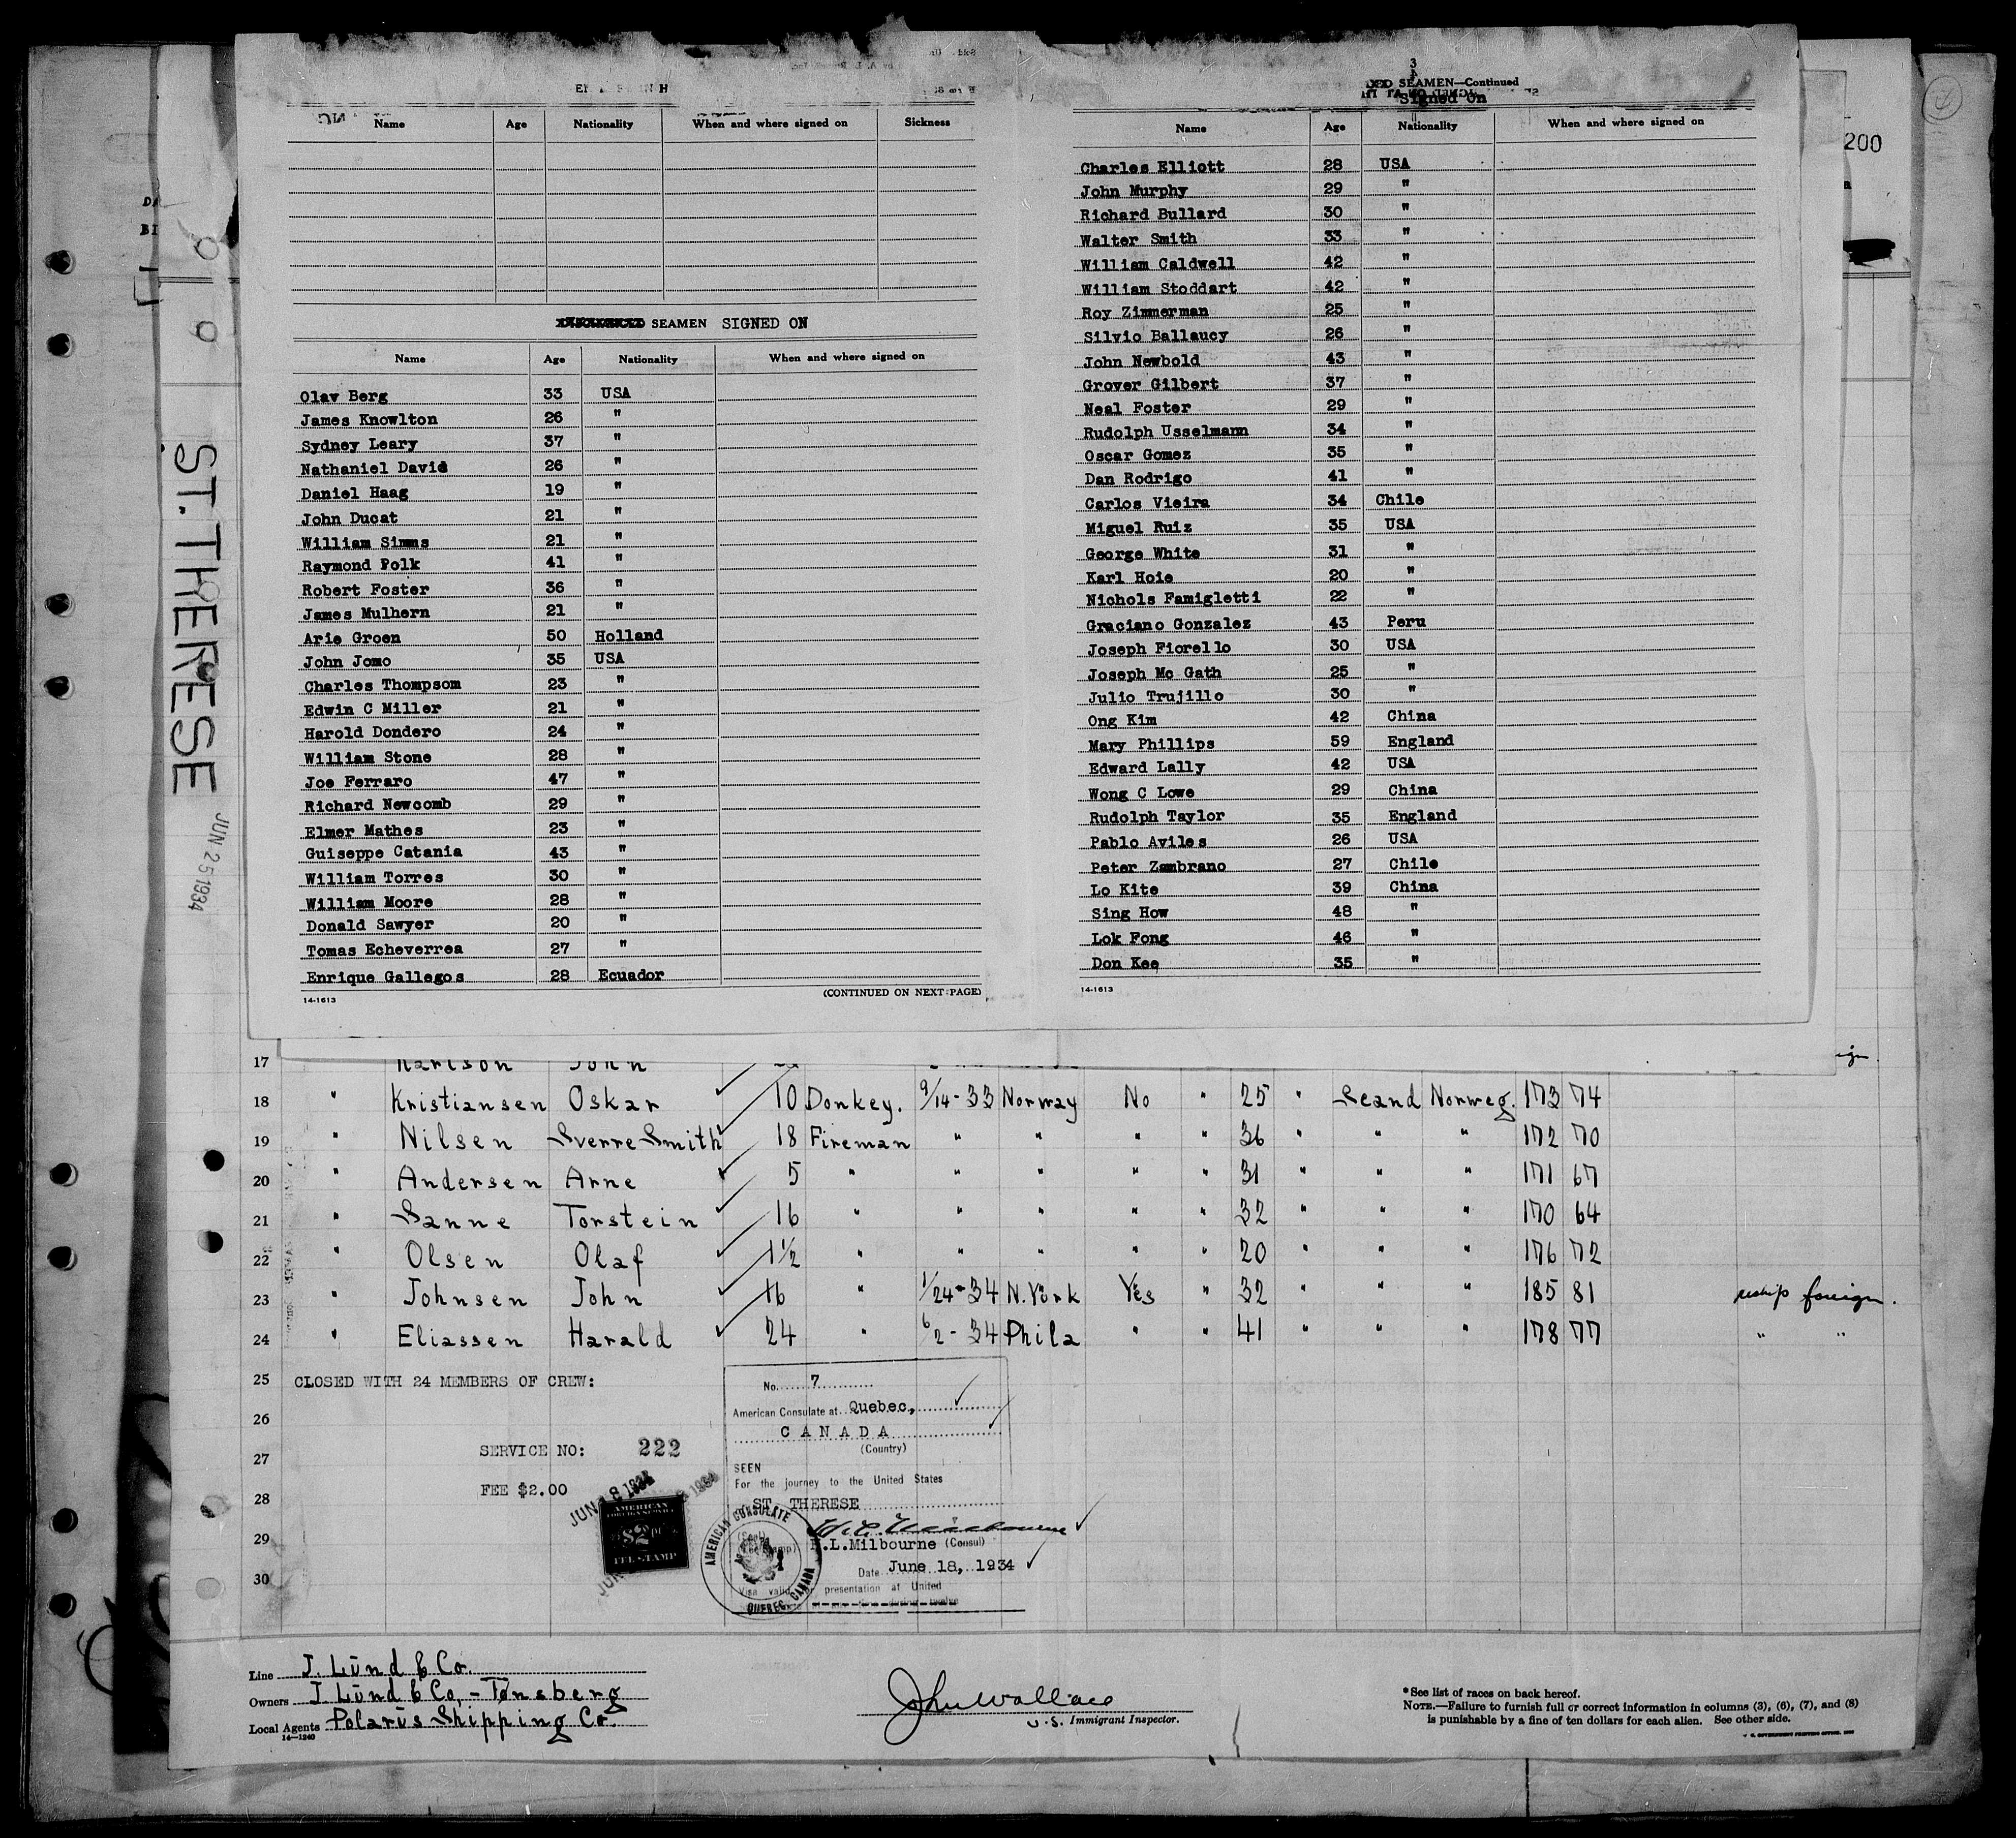 ST. THERESE JUN 25 1934
200
Name Age Nationality When and where signed on Sickness
SEAMEN SIGNED ON
Name Age Nationality When and where signed on
Olav Berg 33 USA
James Knowlton 26 "
Sydney Leary 37 "
Nathaniel David 26 "
Daniel Haag 19 "
John Ducat 21 "
William Simms 21 "
Raymond Polk 41 "
Robert Foster 36 "
James Mulhern 21 "
Arie Groen 50 Holland
John Jomo 35 USA
Charles Thompsom 23 "
Edwin C Miller 21 "
Harold Dondero 24 "
William Stone 28 "
Joe Ferraro 47 "
Richard Newcomb 29 "
Elmer Mathes 23 "
Guiseppe Catania 43 "
William Torres 30 "
William Moore 28 "
Donald Sawyer 20 "
Tomas Echeverrea 27 "
Enrique Gallegos 28 Ecuador
14-1613 (CONTINUED ON NEXT PAGE)
3
SEAMEN—Continued
Signed On
Name Age Nationality When and where signed on
Charles Elliott 28 USA
John Murphy 29 "
Richard Bullard 30 "
Walter Smith 33 "
William Caldwell 42 "
William Stoddart 42 "
Roy Zimmerman 25 "
Silvio Ballaucy 26 "
John Newbold 43 "
Grover Gilbert 37 "
Neal Foster 29 "
Rudolph Usselmann 34 "
Oscar Gomez 35 "
Dan Rodrigo 41 "
Carlos Vieira 34 Chile
Miguel Ruiz 35 USA
George White 31 "
Karl Hoie 20 "
Nichols Famigletti 22 "
Graciano Gonzalez 43 Peru
Joseph Fiorello 30 USA
Joseph Mc Gath 25 "
Julio Trujillo 30 "
Ong Kim 42 China
Mary Phillips 59 England
Edward Lally 42 USA
Wong C Lowe 29 China
Rudolph Taylor 35 England
Pablo Aviles 26 USA
Peter Zambrano 27 Chile
Lo Kite 39 China
Sing How 48 "
Lok Fong 46 "
Don Kee 35 "
14-1613
17 Karlson John
18 " Kristiansen Oskar 10 Donkey. 9/14-33 Norway No " 25 " Scand Norweg. 173 74
19 " Nilsen Sverre Smith 18 Fireman " " " " 36 " " " 172 70
20 " Andersen Arne 5 " " " " " 31 " " " 171 67
21 " Sanne Torstein 16 " " " " " 32 " " " 170 64
22 " Olsen Olaf 1½ " " " " " 20 " " " 176 72
23 " Johnsen John 16 " 1/24-34 N.York Yes " 32 " " " 185 81 reship foreign.
24 " Eliassen Harald 24 " 6/2-34 Phila " " 41 " " " 178 77 " "
25 CLOSED WITH 24 MEMBERS OF CREW:
26
27 SERVICE NO: 222
28 FEE $2.00
29
30
JUN 18 1934
AMERICAN
FOREIGN SERVICE
$2
FEE STAMP
No. 7
American Consulate at Quebec,
CANADA
(Country)
SEEN
For the journey to the United States
ST. THERESE
H.L.Milbourne (Consul)
Date June 18, 1934
Visa valid for presentation at United
AMERICAN CONSULATE
QUEBEC, CANADA
Line J. Lund & Co.
Owners J Lund & Co, - Tønsberg
Local Agents Polarus Shipping Co.
14—1240
John Wallace
U.S. Immigrant Inspector.
*See list of races on back hereof.
NOTE.—Failure to furnish full or correct information in columns (3), (6), (7), and (8)
is punishable by a fine of ten dollars for each alien. See other side.